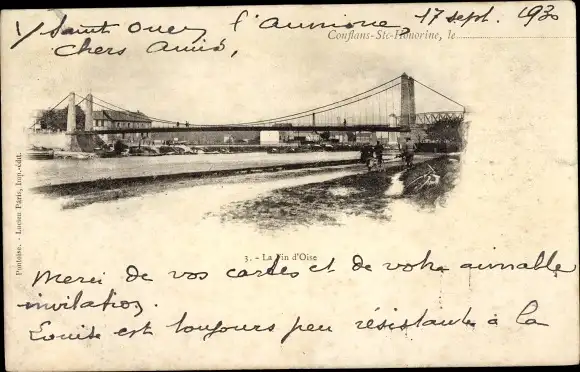 Saint Ouen l'Aumône, 17 sept. 1930
Conflans-Ste-Honorine, le
Chers Amis,
Pontoise. - Lucien Pâris, Imp.-édit.
3. - La Fin d'Oise
Merci de vos cartes et de votre aimable
invitation.
Louise est toujours peu résistante à la